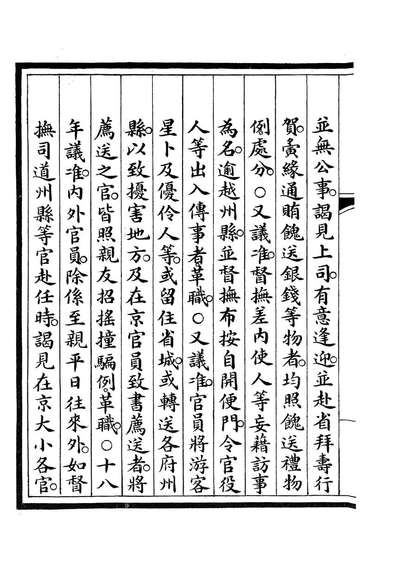 並無公事。謁見上司。有意逢迎。並赴省拜壽行
賀。夤緣通賄餽送銀錢等物者。均照餽送禮物
例處分。○又議准。督撫差内使人等妄藉訪事
為名。逾越州縣。並督撫布按自開便門。令官役
人等出入傳事者革職。○又議准。官員將游客
星卜及優伶人等。或留住省城。或轉送各府州
縣。以致擾害地方。及在京官員致書薦送者。將
薦送之官。皆照親友招搖撞騙例。革職。○十八
年議准。内外官員。除係至親平日往來外。如督
撫司道州縣等官赴任時。謁見在京大小各官。